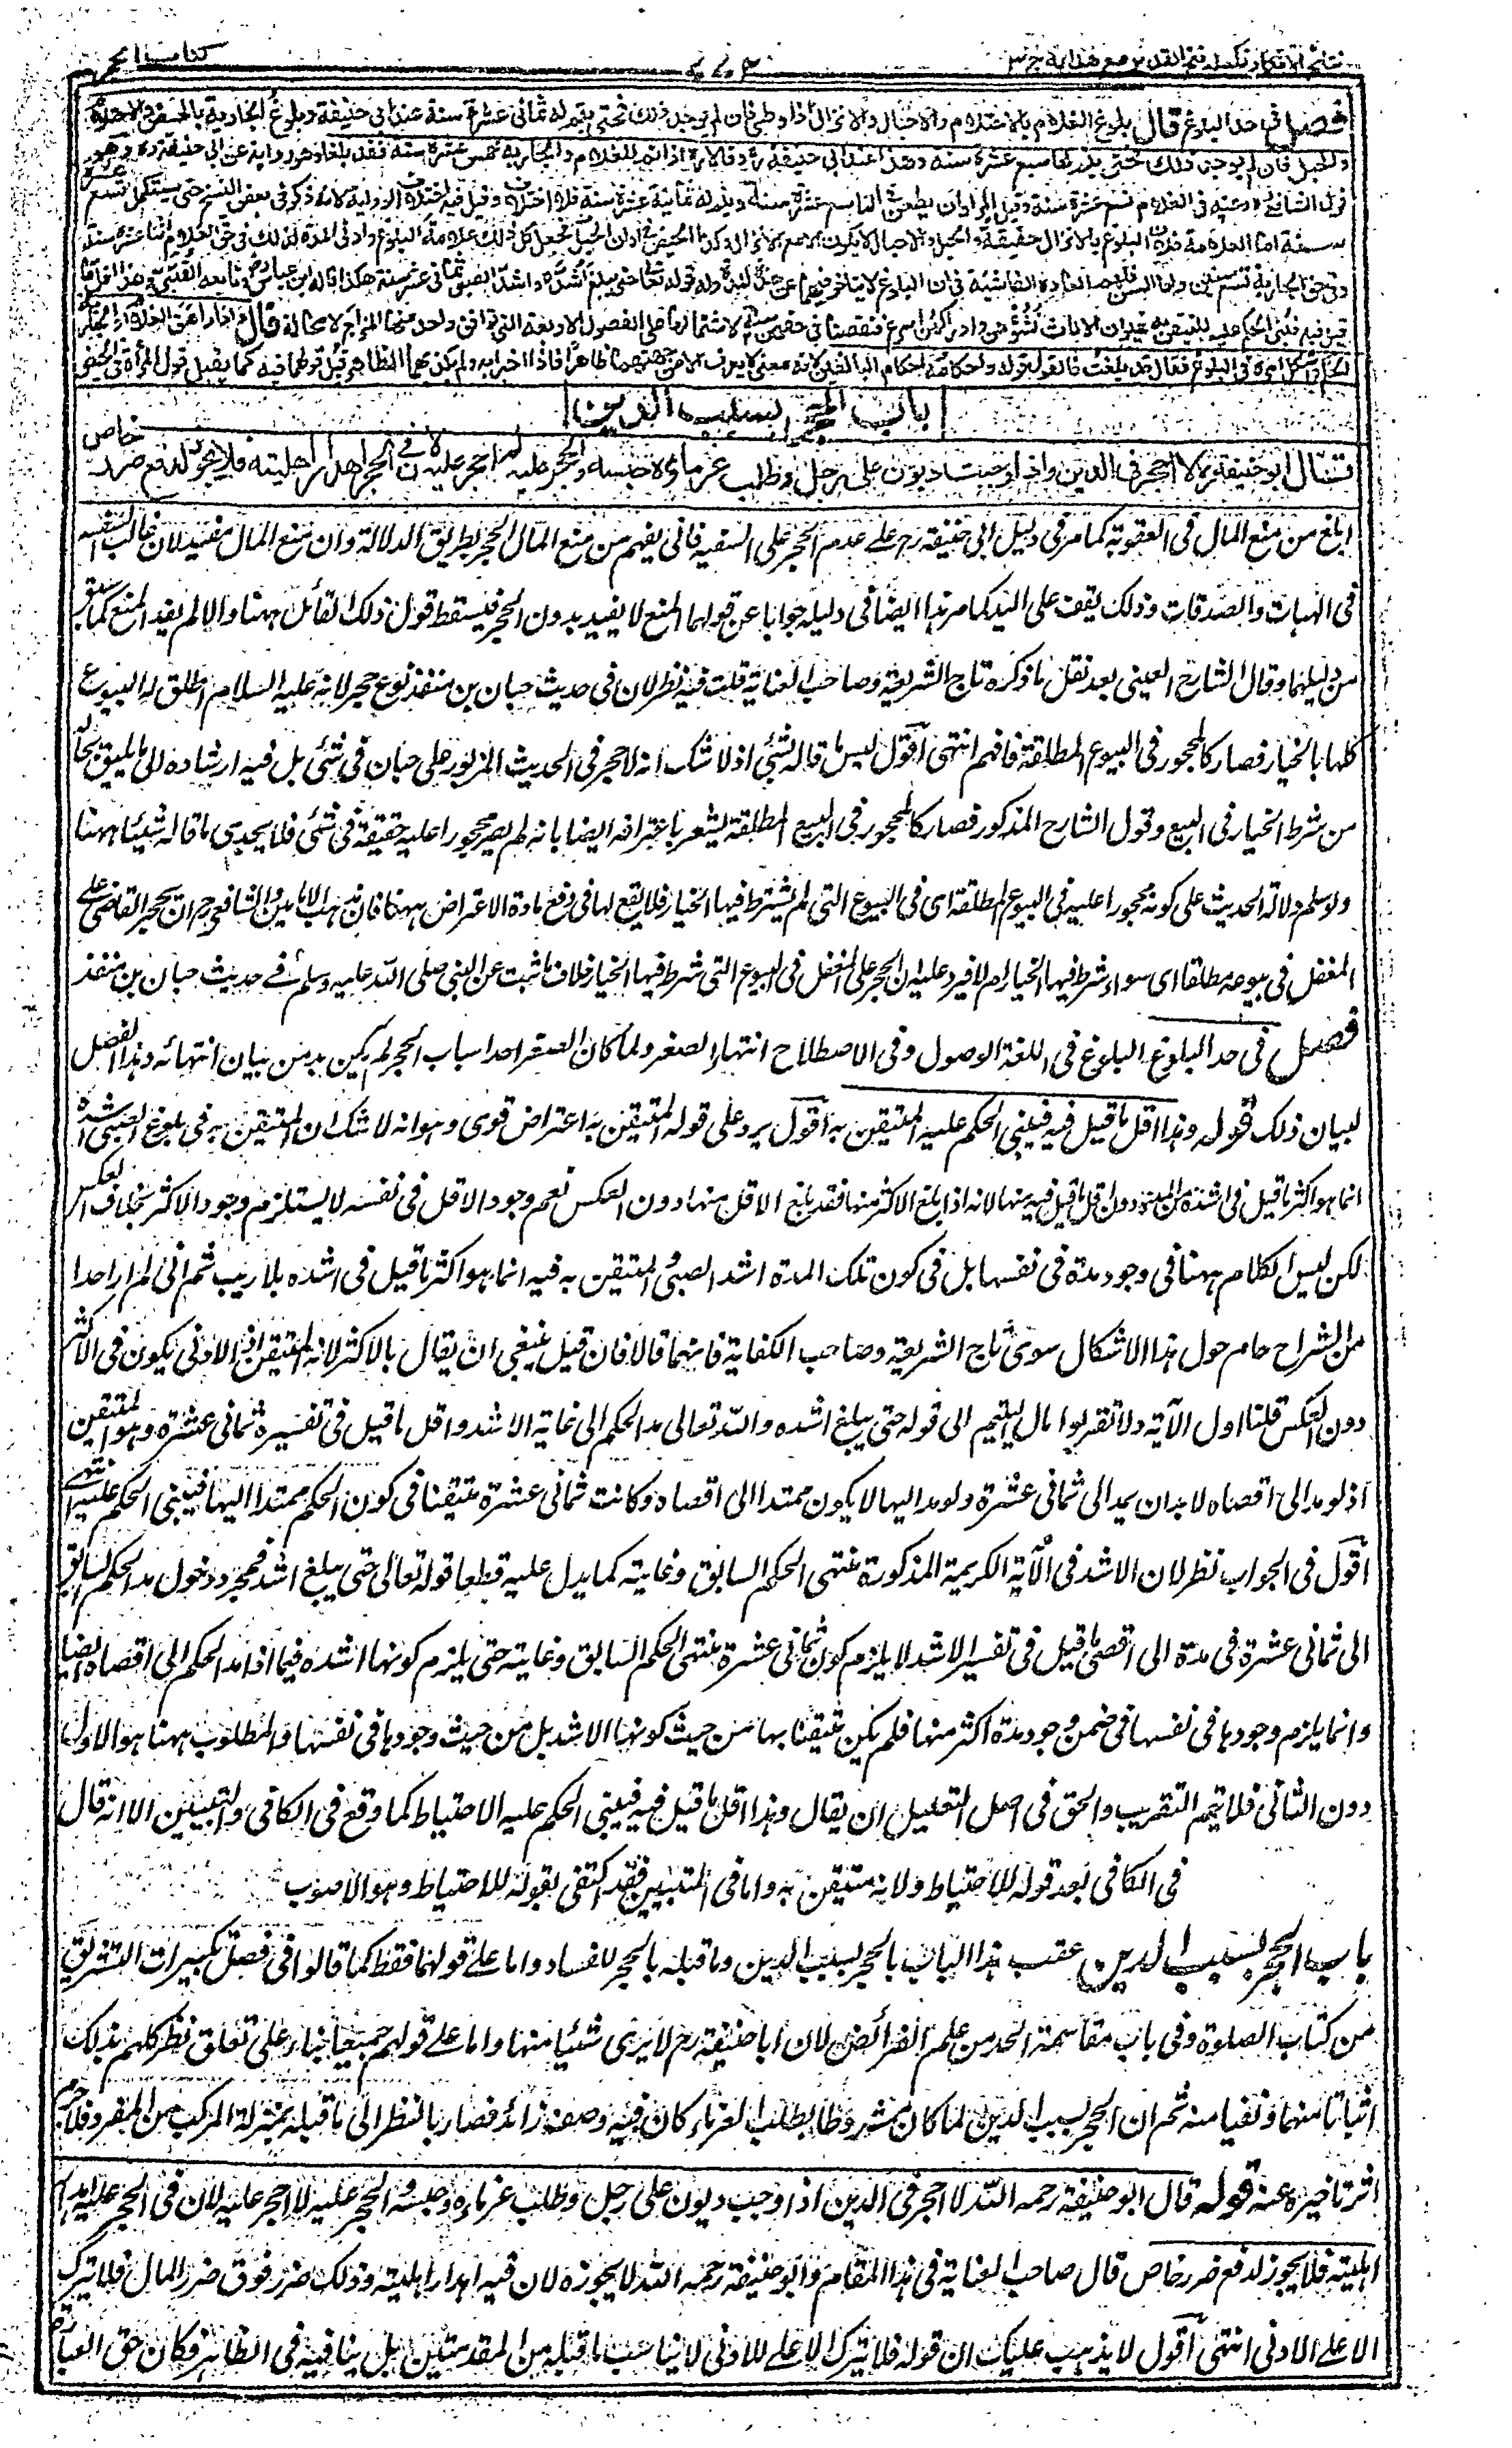 نتائج الافكار تكمله فتح القدير مع هداية ج ٣
كتاب الحجر
فصل في حد البلوغ قال بلوغ الغلام بالاحتلام والاحبال والانزال اذا وطئ فان لم يوجد ذلك فحتى يتم له ثماني عشرة سنة عند ابي حنيفة وبلوغ الجارية بالحيض والاحتلام
والحبل فان لم يوجد ذلك فحتى يتم لها سبع عشرة سنة وهذا عند ابي حنيفة رح وقالا رح اذا تم للغلام والجارية خمس عشرة سنة فقد بلغا وهو رواية عن ابي حنيفة رح وهو
قول الشافعي رح وعنه في الغلام تسع عشرة سنة وقيل المراد ان يطعن في التاسع عشرة سنة ويتم له ثمانية عشرة سنة فلا اختلاف وقيل فيه اختلاف الرواية لانه ذكر في بعض النسخ حتى يستكمل تسع عشرة
سنة اما العلامة فلان البلوغ بالانزال حقيقة والحبل والاحبال لا يكون الا مع الانزال وكذا الحيض في اوان الحبل فجعل كل ذلك علامة البلوغ وادنى المدة لذلك في حق الغلام اثنا عشرة سنة
وفي حق الجارية تسع سنين واما السن فلهم العادة الفاشية في ان البلوغ لا يتأخر فيهما عن هذه المدة وله قوله تعالى حتى يبلغ اشده واشد الصبي ثماني عشرة سنة هكذا قاله ابن عباس رض وتابعه القتبي وهذا اقل ما
قيل فيه فيبنى الحكم عليه للتيقن به غير ان الاناث نشوؤهن وادراكهن اسرع فنقصنا في حقهن سنة لاشتمالها على الفصول الاربعة التي توافق واحد منها المزاج لا محالة قال واذا راهق الغلام او الجارية
الحلم واشكل امره في البلوغ فقال قد بلغت فالقول قوله واحكامه احكام البالغين لانه معنى لا يعرف الا من جهتهما ظاهرا فاذا اخبرا به ولم يكذبهما الظاهر قبل قولهما فيه كما يقبل قول المرأة في الحيض
باب الحجر بسبب الدين
قال ابو حنيفة رح لا احجر في الدين واذا وجبت ديون على رجل وطلب غرماؤه حبسه والحجر عليه لم احجر عليه لان في الحجر اهدار اهليته فلا يجوز لدفع ضرر خاص
ابلغ من منع المال في العقوبة كما مر في دليل ابي حنيفة رح على عدم الحجر على السفيه فاني يفهم من منع المال الحجر بطريق الدلالة وان منع المال مفيد لان غالب السفه
في الهبات والصدقات وذلك يقف على اليد كما مر هذا ايضا في دليله جوابا عن قولهما المنع لا يفيد بدون الحجر فيسقط قول ذلك القائل ههنا والا لم يفد المنع كما سبق
من دليلهما وقال الشارح العيني بعد نقل ما ذكره تاج الشريعة وصاحب العناية قلت فيه نظر لان في حديث حبان بن منقذ نوع حجر لانه عليه السلام اطلق له البيوع
كلها بالخيار فصار كالمحجور في البيوع المطلقة فافهم انتهى اقول ليس ما قاله بشئ اذ لا شك انه لا حجر في الحديث المزبور على حبان في شئ بل فيه ارشاده الى ما يليق بحاله
من شرط الخيار في البيع وقول الشارح المذكور فصار كالمحجور في البيع المطلقة يشعر باعترافه ايضا بانه لم يصر محجورا عليه حقيقة في شئ فلا يجدي ما قاله شيئا ههنا
ولو سلم دلالة الحديث على كونه محجورا عليه في البيوع المطلقة اى في البيوع التى لم يشترط فيها الخيار فلا يقع لها في دفع مادة الاعتراض ههنا فان مذهب الامامين والشافعي رح ان يحجر القاضي على
المغفل في بيوعه مطلقا اى سواء شرط فيها الخيار ام لا فيرد عليه ان الحجر على المغفل في البيوع التى شرط فيها الخيار خلاف ما ثبت عن النبي صلى الله عليه وسلم في حديث حبان بن منقذ
فصل في حد البلوغ البلوغ في اللغة الوصول وفي الاصطلاح انتهاء الصغر ولما كان الصغر احد اسباب الحجر لم يكن بد من بيان انتهائه وهذا الفصل
لبيان ذلك قوله وهذا اقل ما قيل فيه فيبنى الحكم عليه المتيقن به اقول يرد على قوله المتيقن به اعتراض قوى وهو انه لا شك ان المتيقن به في بلوغ الصبى اشده
انما هو اكثر ما قيل في اشده من المدة دون اقل ما قيل فيه منها لانه اذا بلغ الاكثر منها فقد بلغ الاقل منها دون العكس نعم وجود الاقل في نفسه لا يستلزم وجود الاكثر بخلاف العكس
لكن ليس الكلام ههنا في وجود مدة في نفسها بل في كون تلك المدة اشد الصبى والمتيقن به فيه انما هو اكثر ما قيل في اشده بلا ريب ثم انى لم ار احدا
من الشراح حام حول هذا الاشكال سوى تاج الشريعة وصاحب الكفاية فانهما قالا فان قيل ينبغي ان يقال بالاكثر لانه المتيقن اذ الادنى يكون في الاكثر
دون العكس قلنا اول الآية ولا تقربوا مال اليتيم الى قوله حتى يبلغ اشده والله تعالى مد الحكم الى غاية الاشد واقل ما قيل في تفسيره ثماني عشرة وهو المتيقن
اذ لو مد الى اقصاه لا بد ان يمد الى ثماني عشرة ولو مد اليها لا يكون ممتدا الى اقصاه وكانت ثماني عشرة متيقنا في كون الحكم ممتدا اليها فيبنى الحكم عليه انتهى
اقول في الجواب نظر لان الاشد في الآية الكريمة المذكورة منتهى الحكم السابق وغايته كما يدل عليه قطعا قوله تعالى حتى يبلغ اشده فمجرد دخول مد الحكم السابق
الى ثماني عشرة في مدة الى اقصى ما قيل في تفسير الاشد لا يلزم كون ثماني عشرة منتهى الحكم السابق وغايته حتى يلزم كونها اشده فيما اذا مد الحكم الى اقصاه ايضا
وانما يلزم وجودها في نفسها في ضمن وجود مدة اكثر منها فلم يكن متيقنا بها من حيث كونها الاشد بل من حيث وجودها في نفسها والمطلوب ههنا هو الاول
دون الثاني فلا يتم التقريب والحق في اصل التعليل ان يقال وهذا اقل ما قيل فيه فيبنى الحكم عليه الاحتياط كما وقع في الكافي والتبيين الا انه قال
في الكافي بعد قوله للاحتياط ولانه متيقن به واما في التبيين فقد اكتفى بقوله للاحتياط وهو الاصوب
باب الحجر بسبب الدين عقب هذا الباب بالحجر بسبب الدين وما قبله بالحجر للفساد واما على قولهما فقط كما قالوا في فصل تكبيرات التشريق
من كتاب الصلوة وفي باب مقاسمة الجد من علم الفرائض لان ابا حنيفة رح لا يرى شيئا منها واما على قولهم جميعا بناء على تعلق نظر كلهم بذلك
اثباتا منهما ونفيا منه ثم ان الحجر بسبب الدين لما كان مشروطا بطلب الغرماء كان فيه وصف زائد فصار بالنظر الى ما قبله بمنزلة المركب من المفرد فلا جرم
اثر تاخيره عنه قوله قال ابو حنيفة رحمه الله لا احجر في الدين اذا وجب ديون على رجل وطلب غرماؤه وحبسه والحجر عليه لا احجر عليه لان في الحجر عليه اهدار
اهليته فلا يجوز لدفع ضرر خاص قال صاحب العناية في هذا المقام وابو حنيفة رحمه الله لا يجوزه لان فيه اهدار اهليته وذلك ضرر فوق ضرر المال فلا يترك
الاعلى الادنى انتهى اقول لا يذهب عليك ان قوله فلا يترك الاعلى للادنى لا يناسب ما قبله من المقدمتين بل ينافيه في الظاهر فكان حق العبارة